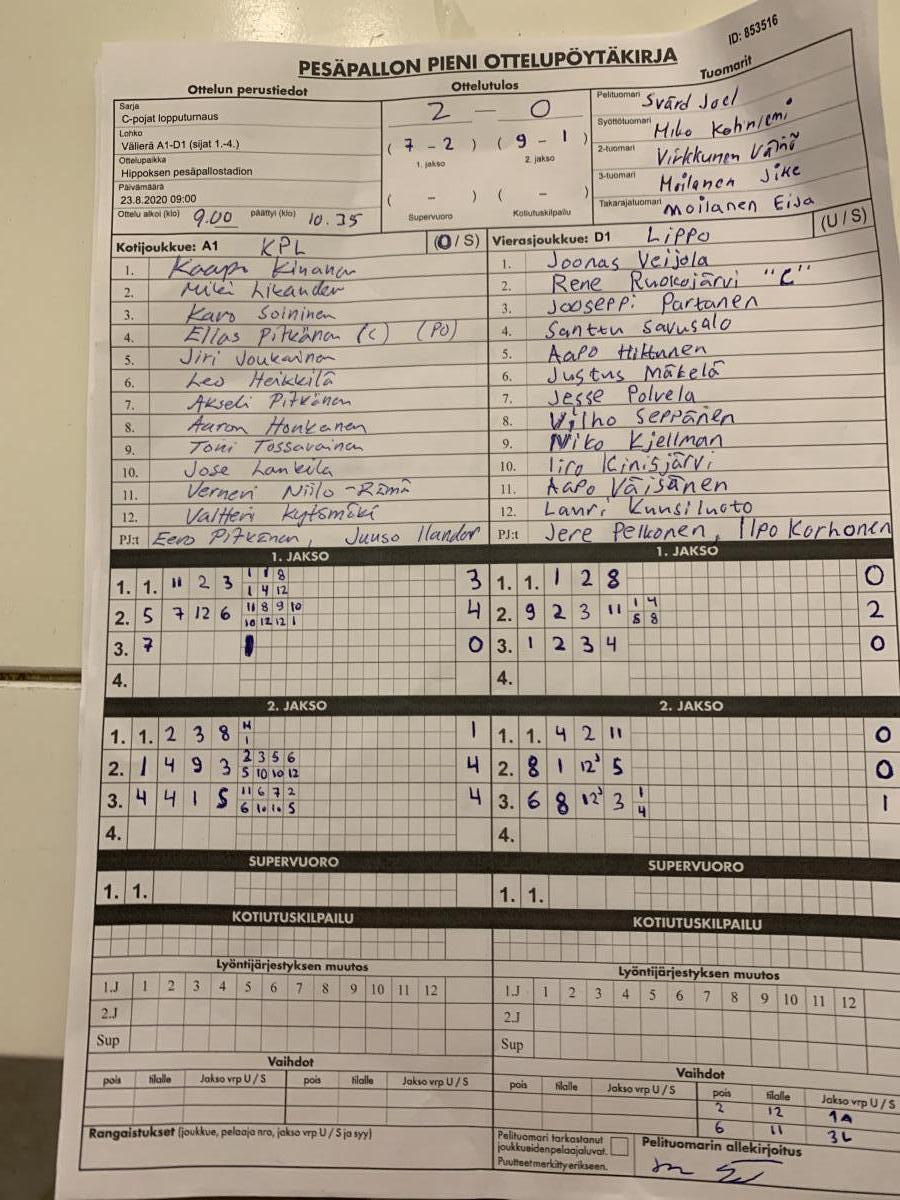 ID: 853516
PESÄPALLON PIENI OTTELUPÖYTÄKIRJA
Ottelun perustiedot Ottelutulos Tuomarit
Sarja
C-pojat lopputurnaus
Lohko
Välierä A1-D1 (sijat 1.-4.)
Ottelupaikka
Hippoksen pesäpallostadion
Päivämäärä
23.8.2020 09:00
Ottelu alkoi (klo) 9.00 päättyi (klo) 10.35
2 — 0
( 7 - 2 ) ( 9 - 1 )
1. jakso 2. jakso
( - ) ( - )
Supervuoro Kotiutuskilpailu
Pelituomari Svärd Joel
Syöttötuomari Miko Kohniemi
2-tuomari Virkkunen Väinö
3-tuomari Moilanen Jike
Takarajatuomari Moilanen Eija
Kotijoukkue: A1 KPL (U / S)
1. Kaapo Kinanen
2. Miki Likander
3. Karo Soininen
4. Elias Pitkänen (C) (PO)
5. Jiri Joukainen
6. Leo Heikkilä
7. Akseli Pitkänen
8. Aaron Honkanen
9. Toni Tossavainen
10. Jose Lankila
11. Verneri Niilo-Rämä
12. Valtteri Kytömäki
PJ:t Eero Pitkänen, Juuso Ilander
Vierasjoukkue: D1 Lippo (U / S)
1. Joonas Veijola
2. Rene Ruokojärvi "C"
3. Jooseppi Partanen
4. Santtu Savusalo
5. Aapo Hiltunen
6. Justus Mäkelä
7. Jesse Polvela
8. Vilho Seppänen
9. Niko Kjellman
10. Iiro Kinisjärvi
11. Aapo Väisänen
12. Lauri Kuusiluoto
PJ:t Jere Pelkonen, Ilpo Korhonen
1. JAKSO
1. 1. 11 2 3 1 1 8 3
1 4 12
2. 5 7 12 6 11 8 9 10 4
10 12 12 1
3. 7 0
4.
1. JAKSO
1. 1. 1 2 8 0
2. 9 2 3 11 1 4 2
8 8
3. 1 2 3 4 0
4.
2. JAKSO
1. 1. 2 3 8 1
1
2. 1 4 9 3 2 3 5 6 4
5 10 10 12
3. 4 4 1 5 11 6 7 2 4
6 10 10 5
4.
2. JAKSO
1. 1. 4 2 11 0
2. 8 1 12' 5 0
3. 6 8 12' 3 1 1
4
4.
SUPERVUORO
1. 1.
SUPERVUORO
1. 1.
KOTIUTUSKILPAILU
KOTIUTUSKILPAILU
Lyöntijärjestyksen muutos
1.J 1 2 3 4 5 6 7 8 9 10 11 12
2.J
Sup
Lyöntijärjestyksen muutos
1.J 1 2 3 4 5 6 7 8 9 10 11 12
2.J
Sup
Vaihdot
pois tilalle Jakso vrp U / S pois tilalle Jakso vrp U / S
Vaihdot
pois tilalle Jakso vrp U / S pois tilalle Jakso vrp U / S
2 12 1A
6 11 3L
Rangaistukset (joukkue, pelaaja nro, jakso vrp U / S ja syy)
Pelituomari tarkastanut
joukkueidenpelaajaluvat.
Puutteet merkitty erikseen.
Pelituomarin allekirjoitus